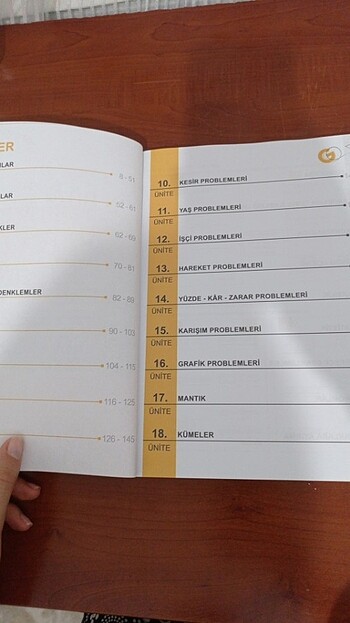 ER
LAR
6 - 51
LAR
52 - 61
KLER
62 - 69
70 - 81
DENKLEMLER
82 - 89
90 - 103
104 - 115
116 - 125
126 - 145
10. ÜNİTE KESİR PROBLEMLERİ
11. ÜNİTE YAŞ PROBLEMLERİ
12. ÜNİTE İŞÇİ PROBLEMLERİ
13. ÜNİTE HAREKET PROBLEMLERİ
14. ÜNİTE YÜZDE - KÂR - ZARAR PROBLEMLERİ
15. ÜNİTE KARIŞIM PROBLEMLERİ
16. ÜNİTE GRAFİK PROBLEMLERİ
17. ÜNİTE MANTIK
18. ÜNİTE KÜMELER